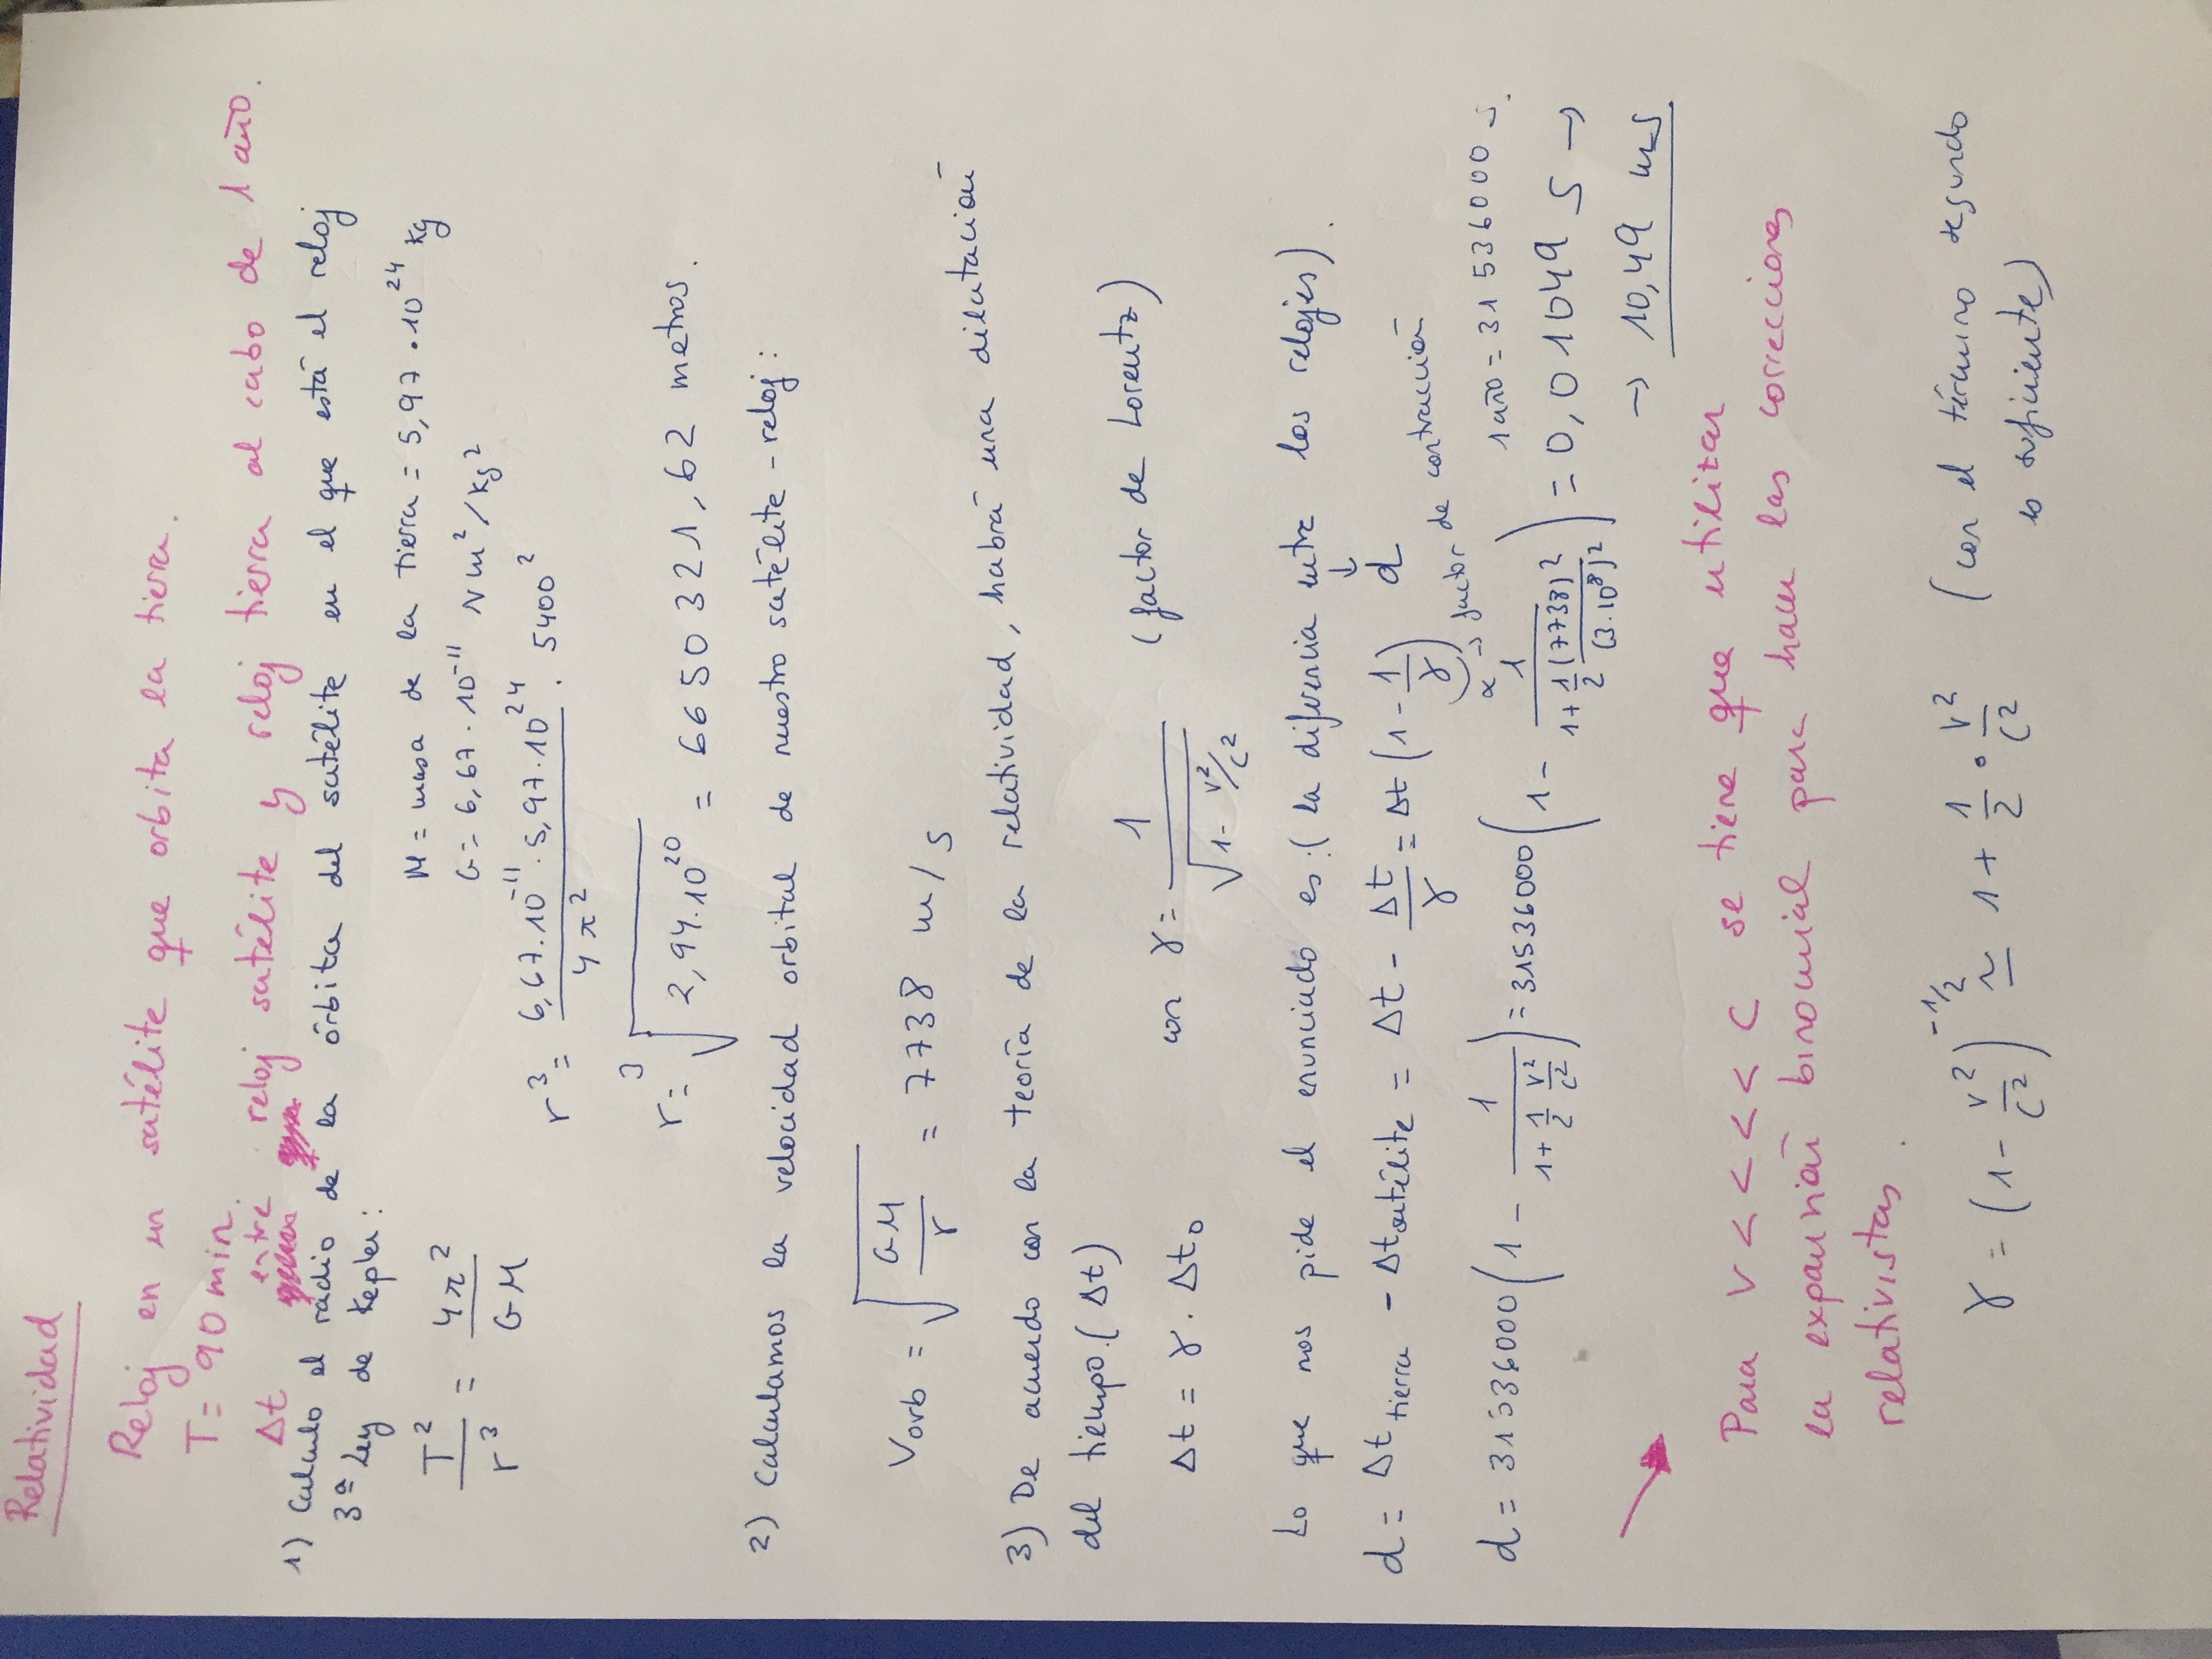 Relatividad
Reloj en un satélite que orbita la tierra.
T = 90 min.
Δt entre reloj satélite y reloj tierra al cabo de 1 año.
1) Calculo el radio de la órbita del satélite en el que está el reloj
3ª Ley de Kepler:
M = masa de la tierra = 5,97 · 10^24 kg
G = 6,67 · 10^-11 N m²/kg²
T²/r³ = 4π²/GM
r³ = (6,67 · 10^-11 · 5,97 · 10^24)/(4π²) · 5400²
r = ³√(2,94 · 10^20) = 6650321,62 metros.
2) Calculamos la velocidad orbital de nuestro satélite-reloj:
Vorb = √(GM/r) = 7738 m/s
3) De acuerdo con la teoría de la relatividad, habrá una dilatación
del tiempo (Δt)
Δt = γ · Δt₀ con γ = 1/√(1 - v²/c²) (factor de Lorentz)
Lo que nos pide el enunciado es: (la diferencia entre los relojes).
↓
d
d = Δt tierra - Δt satélite = Δt - Δt/γ = Δt (1 - 1/γ)
α → factor de contracción
1 año = 31536000 s.
d = 31536000 (1 - 1/(1 + 1/2 v²/c²)) = 31536000 (1 - 1/(1 + 1/2 (7738)²/(3·10⁸)²)) = 0,01049 s →
→ 10,49 ms
Para v <<<< c se tiene que utilizar
la expansión binomial para hacer las correcciones
relativistas.
γ = (1 - v²/c²)^-1/2 ≃ 1 + 1/2 · v²/c² (con el término segundo
es suficiente)